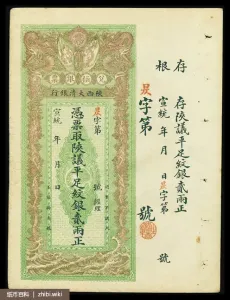 存根
存陝議平足紋銀貳兩正
宣統 年 月 日 字第 號
字第 號
陝西大清銀行
字第 號
憑票取陝議平足紋銀貳兩正
宣統 年 月 日
纸币百科 | zhibi.wiki